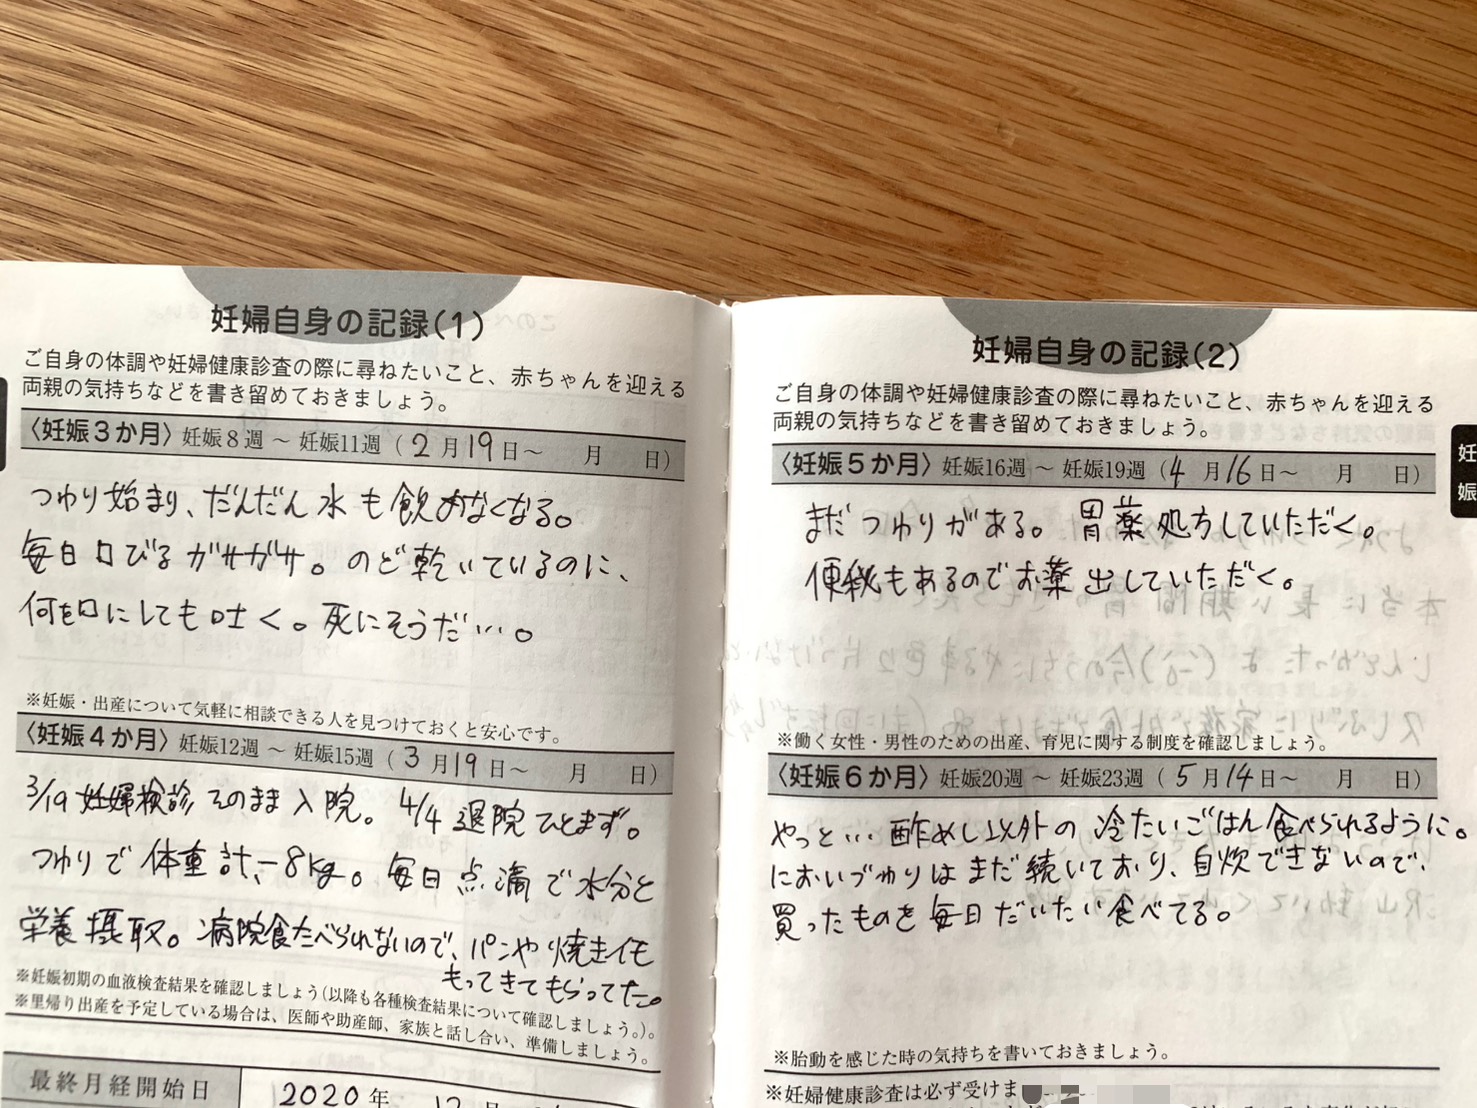 妊婦自身の記録(1)
ご自身の体調や妊婦健康診査の際に尋ねたいこと、赤ちゃんを迎える
両親の気持ちなどを書き留めておきましょう。
〈妊娠3か月〉妊娠8週 ～ 妊娠11週（ 2 月 19 日～　　月　　日）
つわり始まり、だんだん水も飲めなくなる。
毎日口びるガサガサ。のど乾いているのに、
何を口にしても吐く。死にそうだ…。
※妊娠・出産について気軽に相談できる人を見つけておくと安心です。
〈妊娠4か月〉妊娠12週 ～ 妊娠15週（ 3 月 19 日～　　月　　日）
3/19 妊婦検診 そのまま入院。4/4 退院ひとまず。
つわりで体重計、-8kg。毎日点滴で水分と
栄養摂取。病院食たべられないので、パンや焼きイモ
もってきてもらってた。
※妊娠初期の血液検査結果を確認しましょう（以降も各種検査結果について確認しましょう。）。
※里帰り出産を予定している場合は、医師や助産師、家族と話し合い、準備しましょう。
最終月経開始日 2020 年 12 月
妊婦自身の記録(2)
ご自身の体調や妊婦健康診査の際に尋ねたいこと、赤ちゃんを迎える
両親の気持ちなどを書き留めておきましょう。
〈妊娠5か月〉妊娠16週 ～ 妊娠19週（ 4 月 16 日～　　月　　日）
まだつわりがある。胃薬処方していただく。
便秘もあるのでお薬出していただく。
※働く女性・男性のための出産、育児に関する制度を確認しましょう。
〈妊娠6か月〉妊娠20週 ～ 妊娠23週（ 5 月 14 日～　　月　　日）
やっと… 酢めし以外の冷たいごはん食べられるように。
においづわりはまだ続いており、自炊できないので、
買ったものを毎日だいたい食べてる。
※胎動を感じた時の気持ちを書いておきましょう。
※妊婦健康診査は必ず受けま
妊
娠